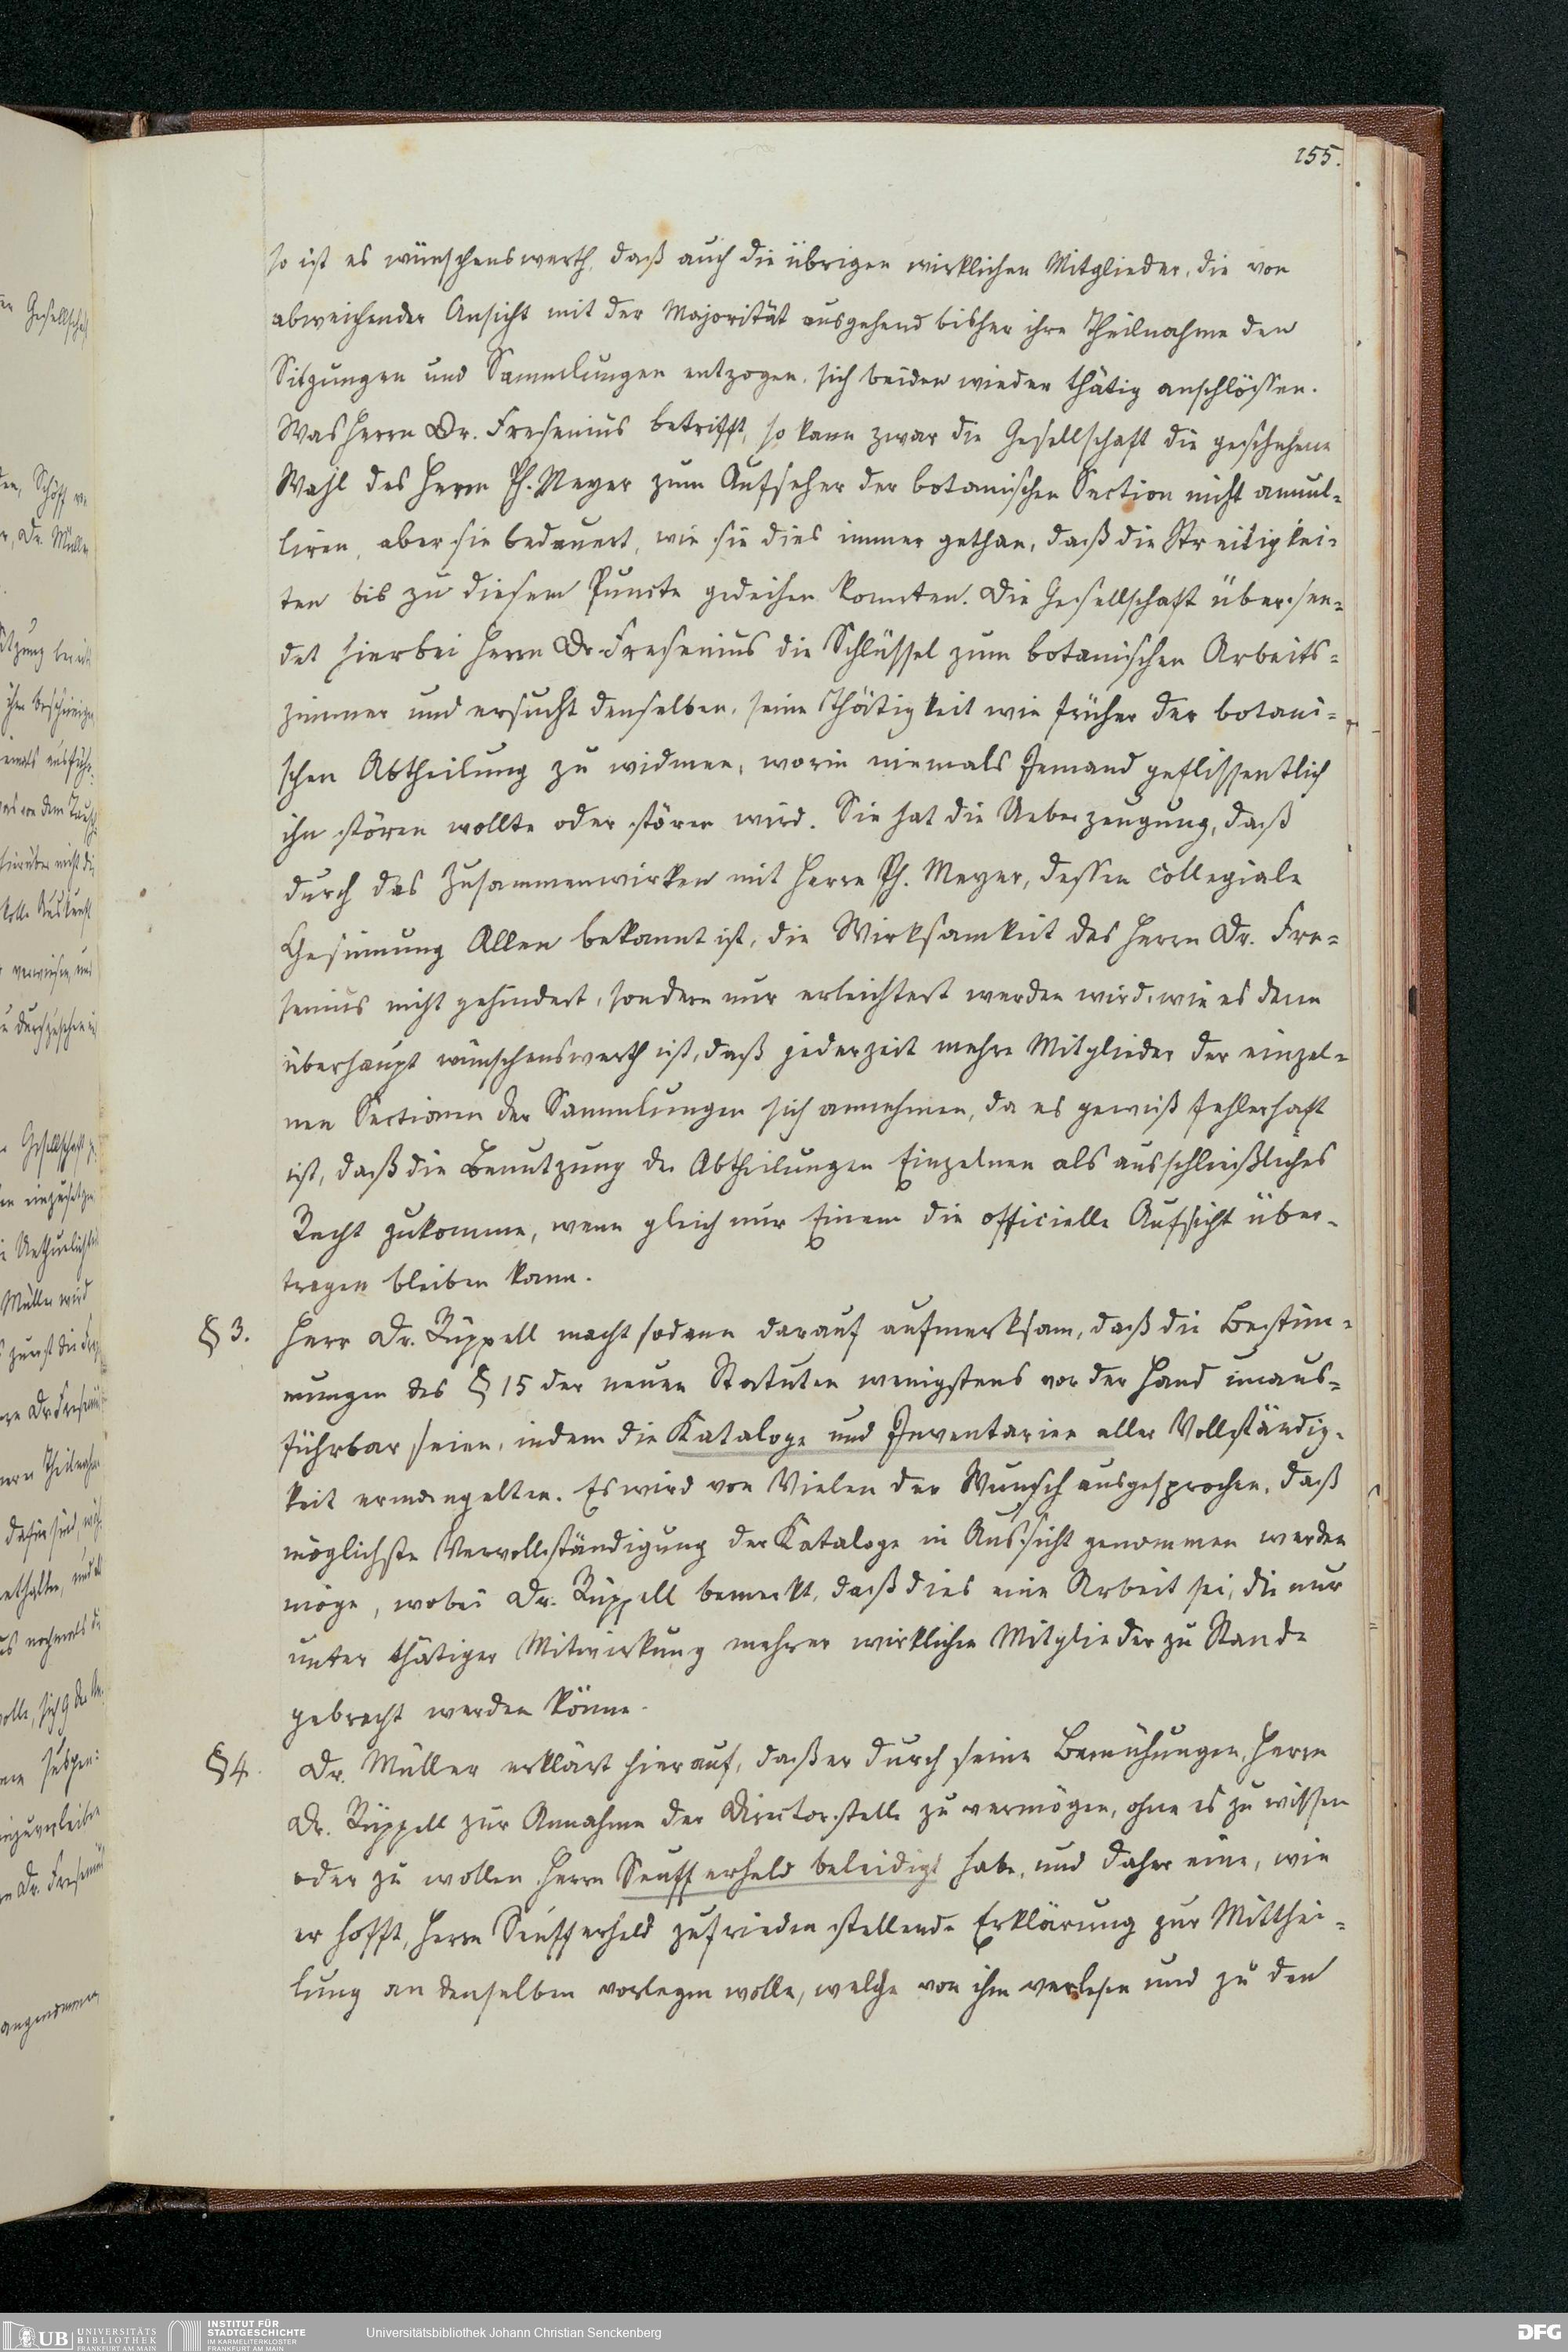 155.
so ist es wünschenswerth, daß auch die übrigen wirklichen Mitglieder, die von
abweichender Ansicht mit der Majorität ausgehend bisher ihre Theilnahme den
Sitzungen und Sammlungen entzogen, sich beiden wieder thätig anschlössen.
Was Herrn Dr. Fresenius betrifft, so kann zwar die Gesellschaft die geschehene
Wahl des Herrn Ph. Meyer zum Aufseher der botanischen Section nicht annul-
liren, aber sie bedauert, wie sie dies immer gethan, daß die Streitigkei-
ten bis zu diesem Puncte gedeihen konnten. Die Gesellschaft übersen-
det hierbei Herrn Dr Fresenius die Schlüssel zum botanischen Arbeits-
zimmer und ersucht denselben, seine Thätigkeit wie früher der botani-
schen Abtheilung zu widmen, worin niemals Jemand geflissentlich
ihn stören wollte oder stören wird. Sie hat die Ueberzeugung, daß
durch das Zusammenwirken mit Herrn Ph. Meyer, dessen collegiale
Gesinnung Allen bekannt ist, die Wirksamkeit des Herrn Dr. Fre-
senius nicht gehindert, sondern nur erleichtert werden wird, wie es denn
überhaupt wünschenswerth ist, daß jederzeit mehre Mitglieder der einzel-
nen Sectionen der Sammlungen sich annehmen, da es gewiß fehlerhaft
ist, daß die Benutzung der Abtheilungen Einzelnen als ausschließliches
Recht zukomme, wenn gleich nur Einem die officielle Aufsicht über-
tragen bleiben kann.
§ 3. Herr Dr. Rüppell macht sodann darauf aufmerksam, daß die Bestim-
mungen des § 15 der neuen Statuten wenigstens vor der Hand unaus-
führbar seien, indem die Kataloge und Inventarien aller Vollständig-
keit ermangelten. Es wird von Vielen der Wunsch ausgesprochen, daß
möglichste Vervollständigung der Kataloge in Aussicht genommen werden
möge, wobei Dr. Rüppell bemerkt, daß dies eine Arbeit sei, die nur
unter thätiger Mitwirkung mehrer wirklichen Mitglieder zu Stande
gebracht werden könne.
§ 4. Dr. Müller erklärt hierauf, daß er durch seine Bemühungen, Herrn
Dr. Rüppell zur Annahme der Directorstelle zu vermögen, ohne es zu wissen
oder zu wollen Herrn Seufferheld beleidigt habe, und daher eine, wie
er hofft, Herrn Seufferheld zufrieden stellende Erklärung zur Mitthei-
lung an denselben vorlegen wolle, welche von ihm verlesen und zu den
UB UNIVERSITÄTS
BIBLIOTHEK
FRANKFURT AM MAIN
INSTITUT FÜR
STADTGESCHICHTE
IM KARMELITERKLOSTER
FRANKFURT AM MAIN
Universitätsbibliothek Johann Christian Senckenberg
DFG